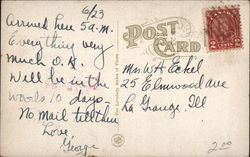 6/23
Arrived here 5 a.m.
Everything very
much O.K.
Will be in the
woods 10 days -
No mail till then
Love,
George
POST
CARD
Mrs. W H Eckel
25 Elmwood Ave
La Grange Ill
2.00